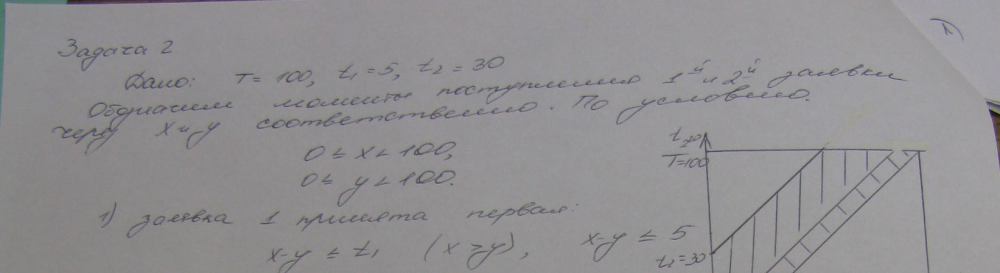 Задача 2
Дано: T = 100, t₁ = 5, t₂ = 30
Обозначим моменты поступления 1ой и 2ой заявки
через x и y соответственно. По условию.
0 ≤ x ≤ 100,
0 ≤ y ≤ 100.
1) заявка 1 принята первая:
x-y ≤ t₁ (x ≥ y), x-y ≤ 5
T=100
t₂=30
1)